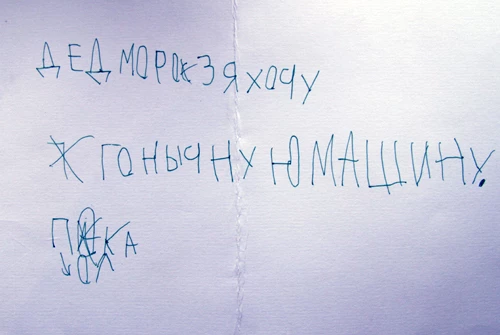 ДЕД МОРОЖЗ Я ХОЧУ
Ж ГОНЫЧНУЮ МАШИНУ.